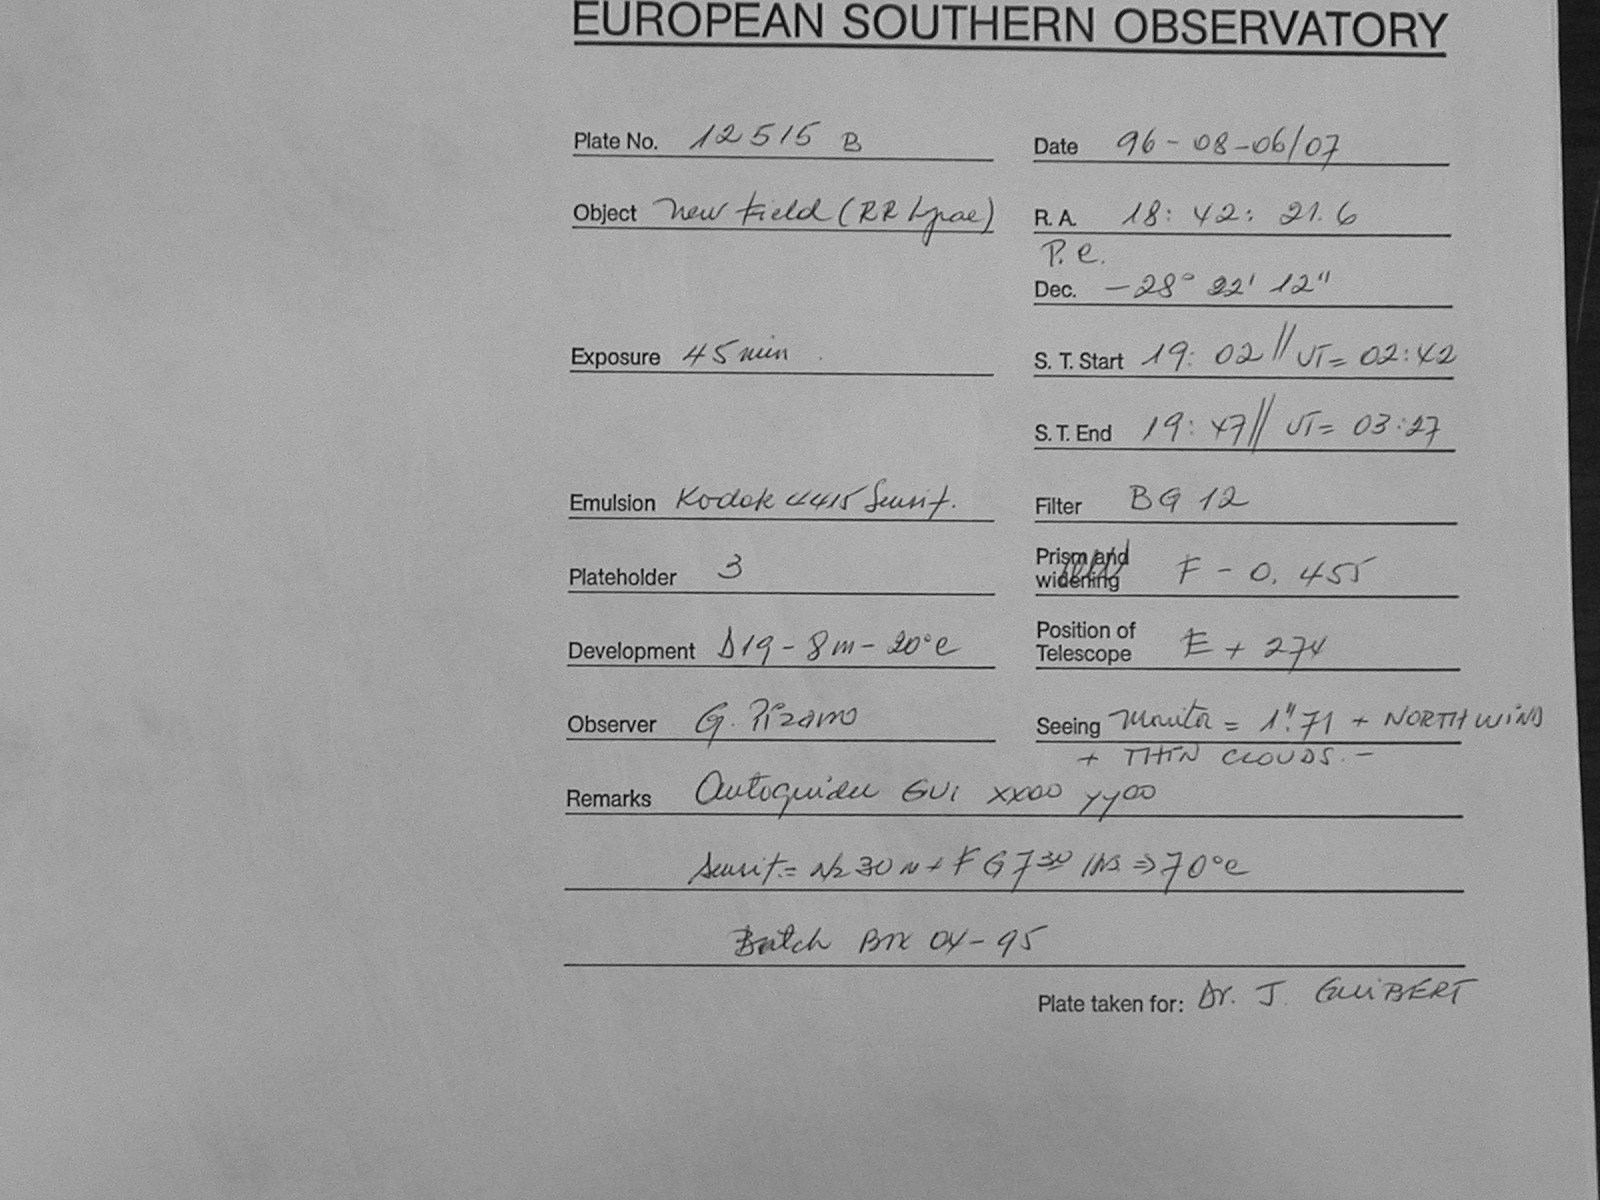 EUROPEAN SOUTHERN OBSERVATORY
Plate No. 12515 B
Date 96-08-06/07
Object New Field (RR Lyrae)
R. A. 18: 42: 21.6
P. e.
Dec. -28° 22' 12"
Exposure 45 min
S. T. Start 19: 02 // UT= 02:42
S. T. End 19: 47 // UT= 03:27
Emulsion Kodak 4415 Sensit.
Filter BG 12
Plateholder 3
Prism and
widening F - 0. 455
Development D19 - 8 m - 20°c
Position of
Telescope E + 274
Observer G. Pizarro
Seeing Monitor = 1".71 + NORTH WIND
+ THIN CLOUDS. -
Remarks Autoguider GUI XX00 YY00
Sensit.= N2 30 m + F G 7 30 ⇒ 70°c
Batch Box 04-95
Plate taken for: Dr. J. GUIBERT